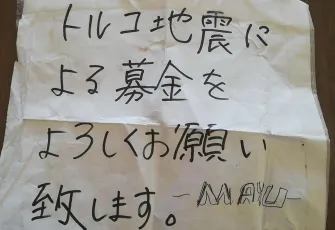 トルコ地震に
よる募金を
よろしくお願い
致します。-MAYU-